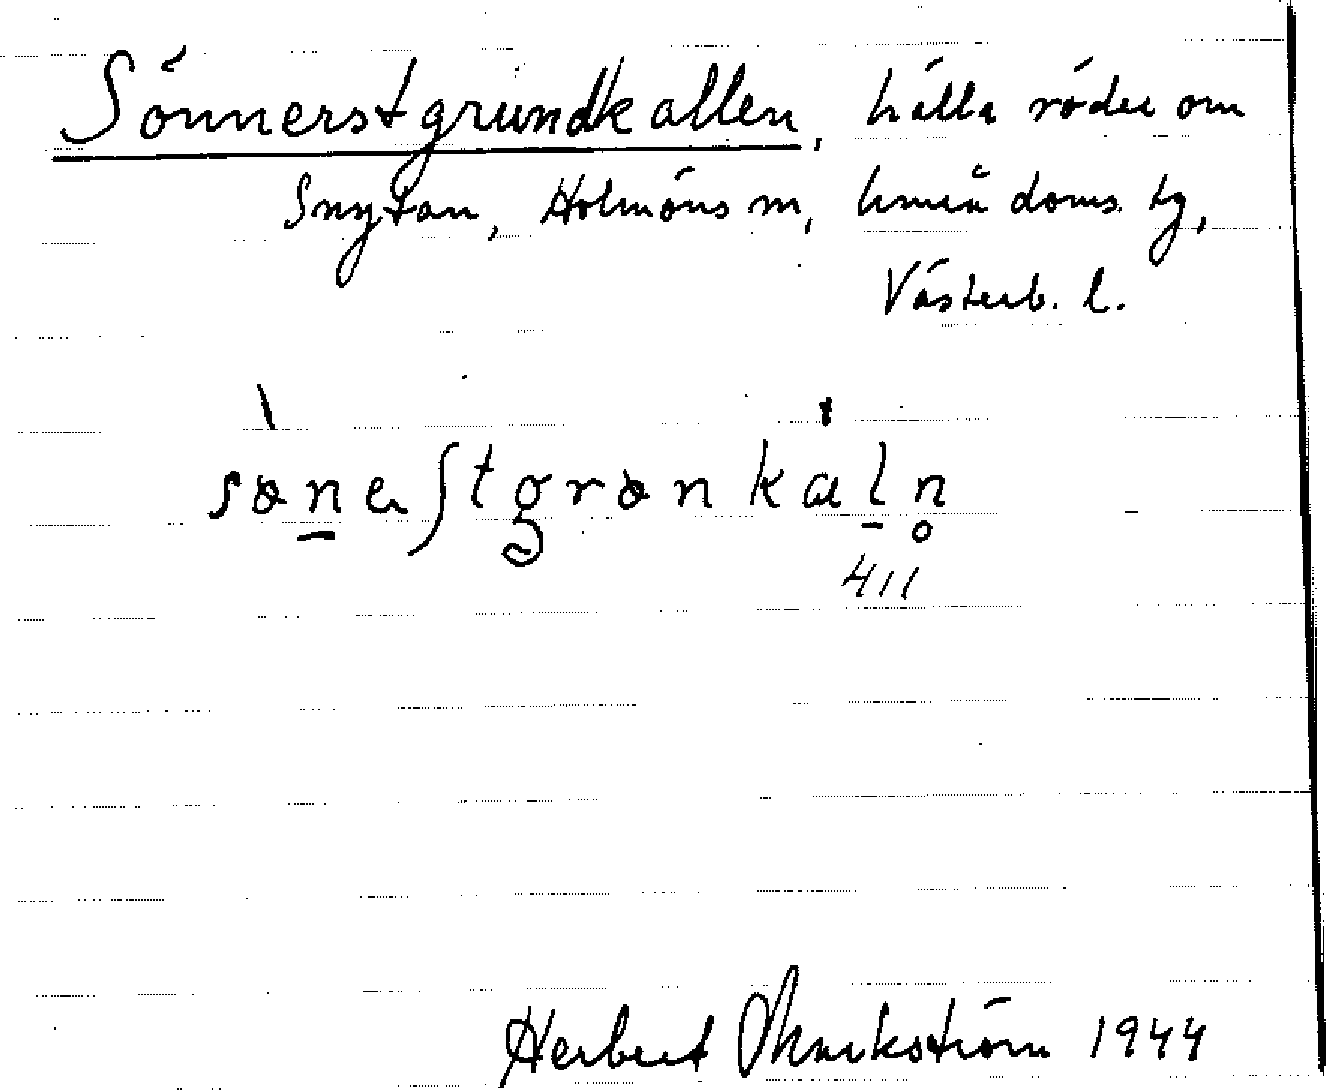 Sönnerstgrundkallen, hälla söder om
Snytan, Holmöns sn, Umeå doms. tg,
Västerb. l.
sɵnest grɵnkaln
411
Herbert Markström 1944